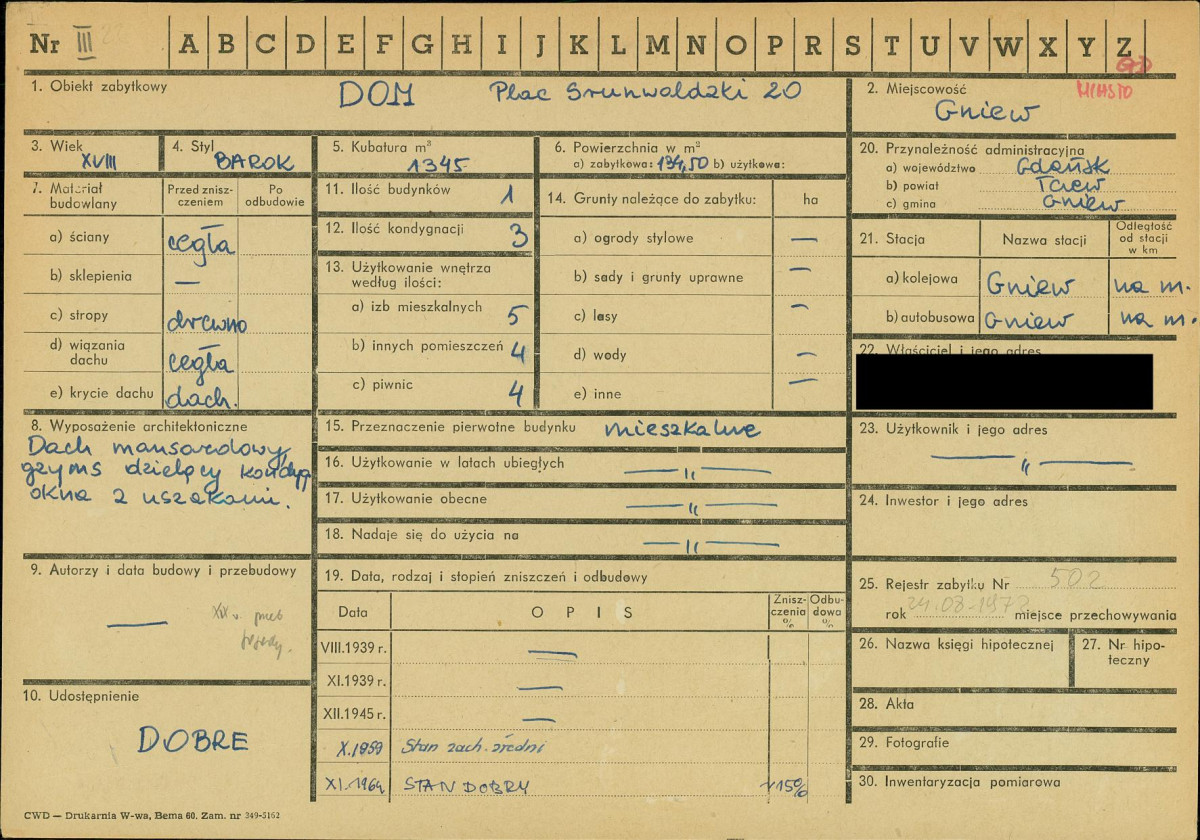 Nr III
A B C D E F G H I J K L M N O P R S T U V W X Y Z
MIASTO
1. Obiekt zabytkowy
DOM Plac Grunwaldzki 20
2. Miejscowość
Gniew
3. Wiek
XVIII
4. Styl
BAROK
5. Kubatura m³
1345
6. Powierzchnia w m²
a) zabytkowa: 134,50 b) użytkowa:
20. Przynależność administracyjna
a) województwo Gdańsk
b) powiat Tczew
c) gmina Gniew
7. Materiał budowlany
Przed zniszczeniem
Po odbudowie
a) ściany cegła
b) sklepienia —
c) stropy drewno
d) wiązania dachu cegła
e) krycie dachu dach.
11. Ilość budynków 1
12. Ilość kondygnacji 3
13. Użytkowanie wnętrza
według ilości:
a) izb mieszkalnych 5
b) innych pomieszczeń 4
c) piwnic 4
14. Grunty należące do zabytku: ha
a) ogrody stylowe —
b) sady i grunty uprawne —
c) lasy —
d) wody —
e) inne —
21. Stacja
Nazwa stacji
Odległość od stacji w km
a) kolejowa Gniew na m.
b) autobusowa Gniew na m.
22. Właściciel i jego adres
8. Wyposażenie architektoniczne
Dach mansardowy,
gzyms dzielący kondyg
okna z uszakami.
15. Przeznaczenie pierwotne budynku mieszkalne
16. Użytkowanie w latach ubiegłych — „ —
17. Użytkowanie obecne — „ —
18. Nadaje się do użycia na — „ —
23. Użytkownik i jego adres
— „ —
24. Inwestor i jego adres
9. Autorzy i data budowy i przebudowy
—
XIX w. przeb
19. Data, rodzaj i stopień zniszczeń i odbudowy
Data
OPIS
Zniszczenia %
Odbudowa %
VIII.1939 r. —
XI.1939 r. —
XII.1945 r. —
X.1959 Stan zach. średni
XI.1964 STAN DOBRY 15%
25. Rejestr zabytku Nr 502
rok 24.08-1972 miejsce przechowywania
26. Nazwa księgi hipotecznej
27. Nr hipoteczny
28. Akta
29. Fotografie
30. Inwentaryzacja pomiarowa
10. Udostępnienie
DOBRE
CWD — Drukarnia W-wa, Bema 60. Zam. nr 349-5162